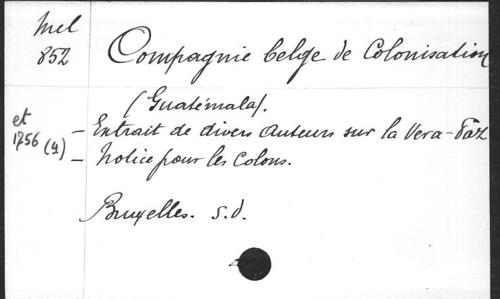 Mel
852
Compagnie belge de Colonisation
(Guatémala).
et
1756 (4)
- Extrait de divers auteurs sur la Vera-Páz
- Notice pour les Colons.
Bruxelles. s.d.